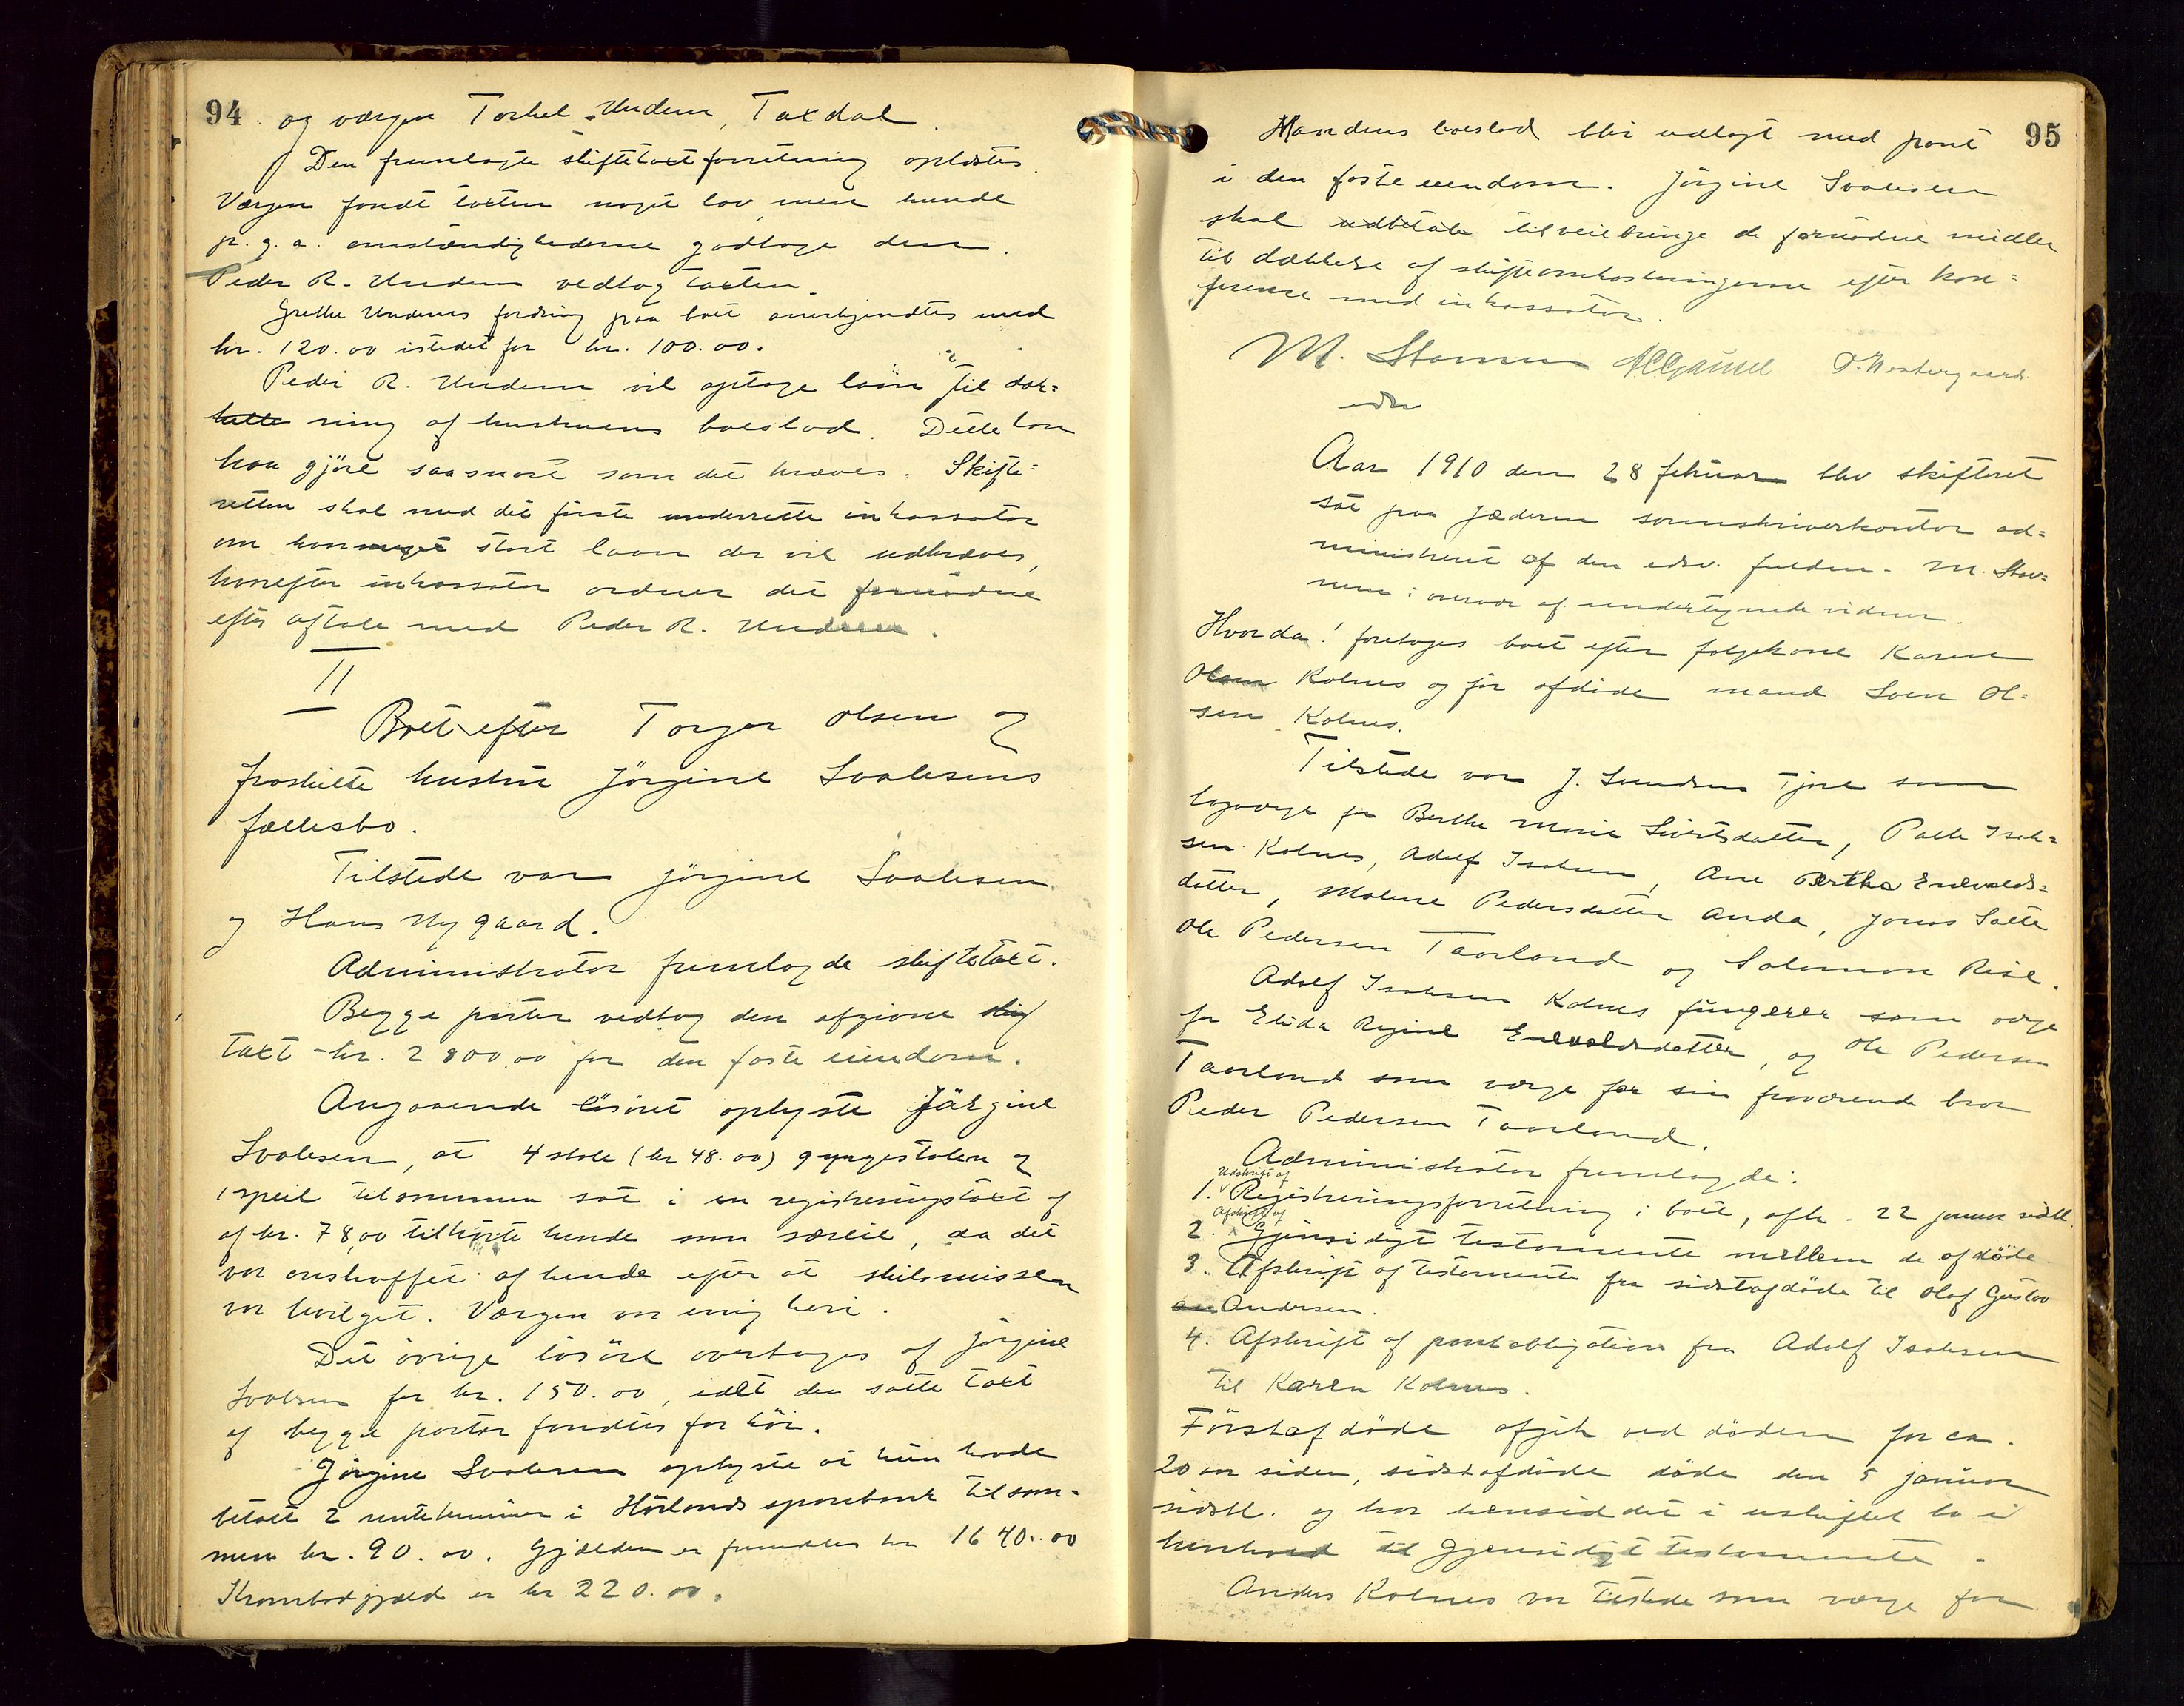 94 og værgen Torkel Undem, Taxdal.
Den fremlagte skiftetaxtforretning oplæstes.
Værgen fandt taxten noget lav, men kunde
p.g.a. omstændighederne godtage den.
Peder R. Undem vedtog taxten.
Grethe Undems fordring paa boet anerkjendtes med
kr. 120.00 istedet for kr. 100.00.
Peder R. Undem vil optage laan til dæk=
ning af hustruens boeslod. Dette kan
han gjöre saasnart som det kræves. Skifte=
retten skal med det förste underrette inkassator
om hvor stort laan der vil udkræves,
hvorefter inkassator ordner det fornödne
efter aftale med Peder R. Undem.
II
Boet efter Torger Olsen og
fraskilte hustru Jörgine Svalesens
fællesbo.
Tilstede var Jörgine Svalesen
og Hans Nygaard.
Administrator fremlagde skiftetaxt.
Begge parter vedtog den afgivne
taxt - kr. 2800.00 for den faste eiendom.
Angaaende lösöret oplyste Jörgine
Svalesen, at 4 stole (kr 48.00) gyngestolen og
1 speil tilsammen sat i en registreringstaxt af
af kr. 78,00 tilhörte hende som særeie, da det
var anskaffet af hende efter at skilsmissen
var bevilget. Værgen var enig heri.
Det övrige lösöre overtages af Jörgine
Svalesen for kr. 150.00, idet den satte taxt
af begge parter fandtes for höi.
Jörgine Svalesen oplyste at hun havde
betalt 2 renteterminer i Hölands sparebank tilsam=
men kr. 90.00. Gjælden er fremdeles kr 1640.00
Krambodgjæld er kr. 220.00.
95
Mandens boeslod blir udlagt med pant
i den faste eiendom. Jörgine Svalesen
skal udbetale tilveiebringe de fornödne midler
til dækkelse af skifteomkostningerne efter kon=
ferense med inkassator.
M. Stamnem P. Westergaard
edsv
Aar 1910 den 28 februar blev skifteret
sat paa Jæderen sorenskriverkontor ad=
ministreret af den edsv. fuldm. M. Stav=
nem i overvær af undertegnede vidner.
Hvorda! foretoges boet efter folgekone Karen
Olsen Kolnes og för afdöde mand Sven Ol=
sen Kolnes.
Tilstede var J. Svendsen Tjore som
lagværge for Berthe Marie Sivertsdatter, Palle Isak=
sen Kolnes, Adolf Isaksen, Ane Bertha Enevolds=
datter, Malene Pedersdatter Anda, Jonas Salte
Ole Pedersen Taarland og Salomon Risa.
Adolf Isaksen Kolnes fungerer som værge
for Elida Regine Enevoldsdatter, og Ole Pedersen
Taarland som værge for sin fraværende bror
Peder Pedersen Taarland.
Administrator fremlagde:
Udskrift af
1. Registreringsforretning i boet, afh. 22 januar sidstl.
Afskrift af
2. Gjensidigt testamente mellem de afdöde
3. Afskrift af testamente fra sidstafdöde til Olaf Gustav
Andersen.
4. Afskrift af pantobligation fra Adolf Isaksen
til Karen Kolnes.
Förstafdöde afgik ved döden for ca.
20 aar siden, sidstafdöde döde den 5 januar
sidstl. og har hensiddet i uskiftet bo i
henhold til gjensidigt testamente.
Anders Kolnes var tilstede som værge for